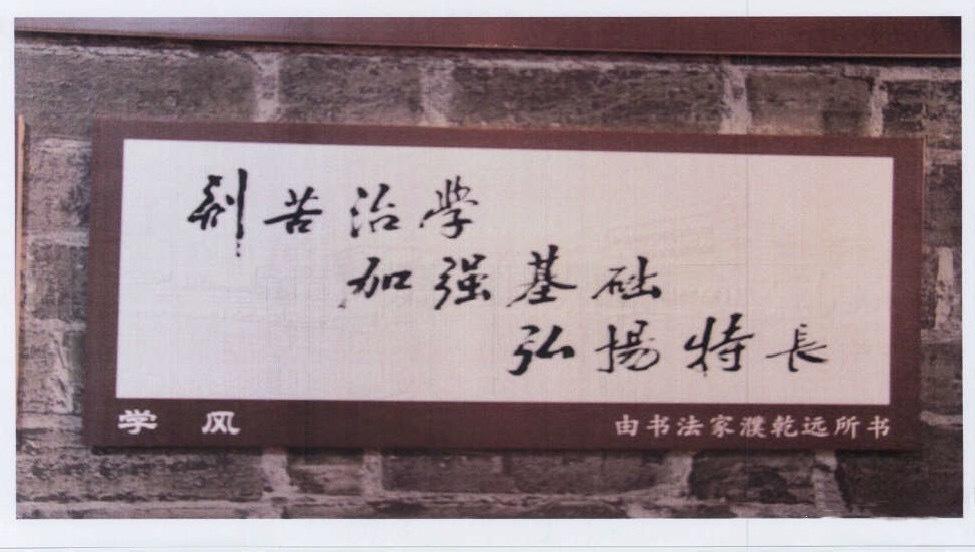 刻苦治学
加强基础
弘揚特長
学风
由书法家濮乾远所书